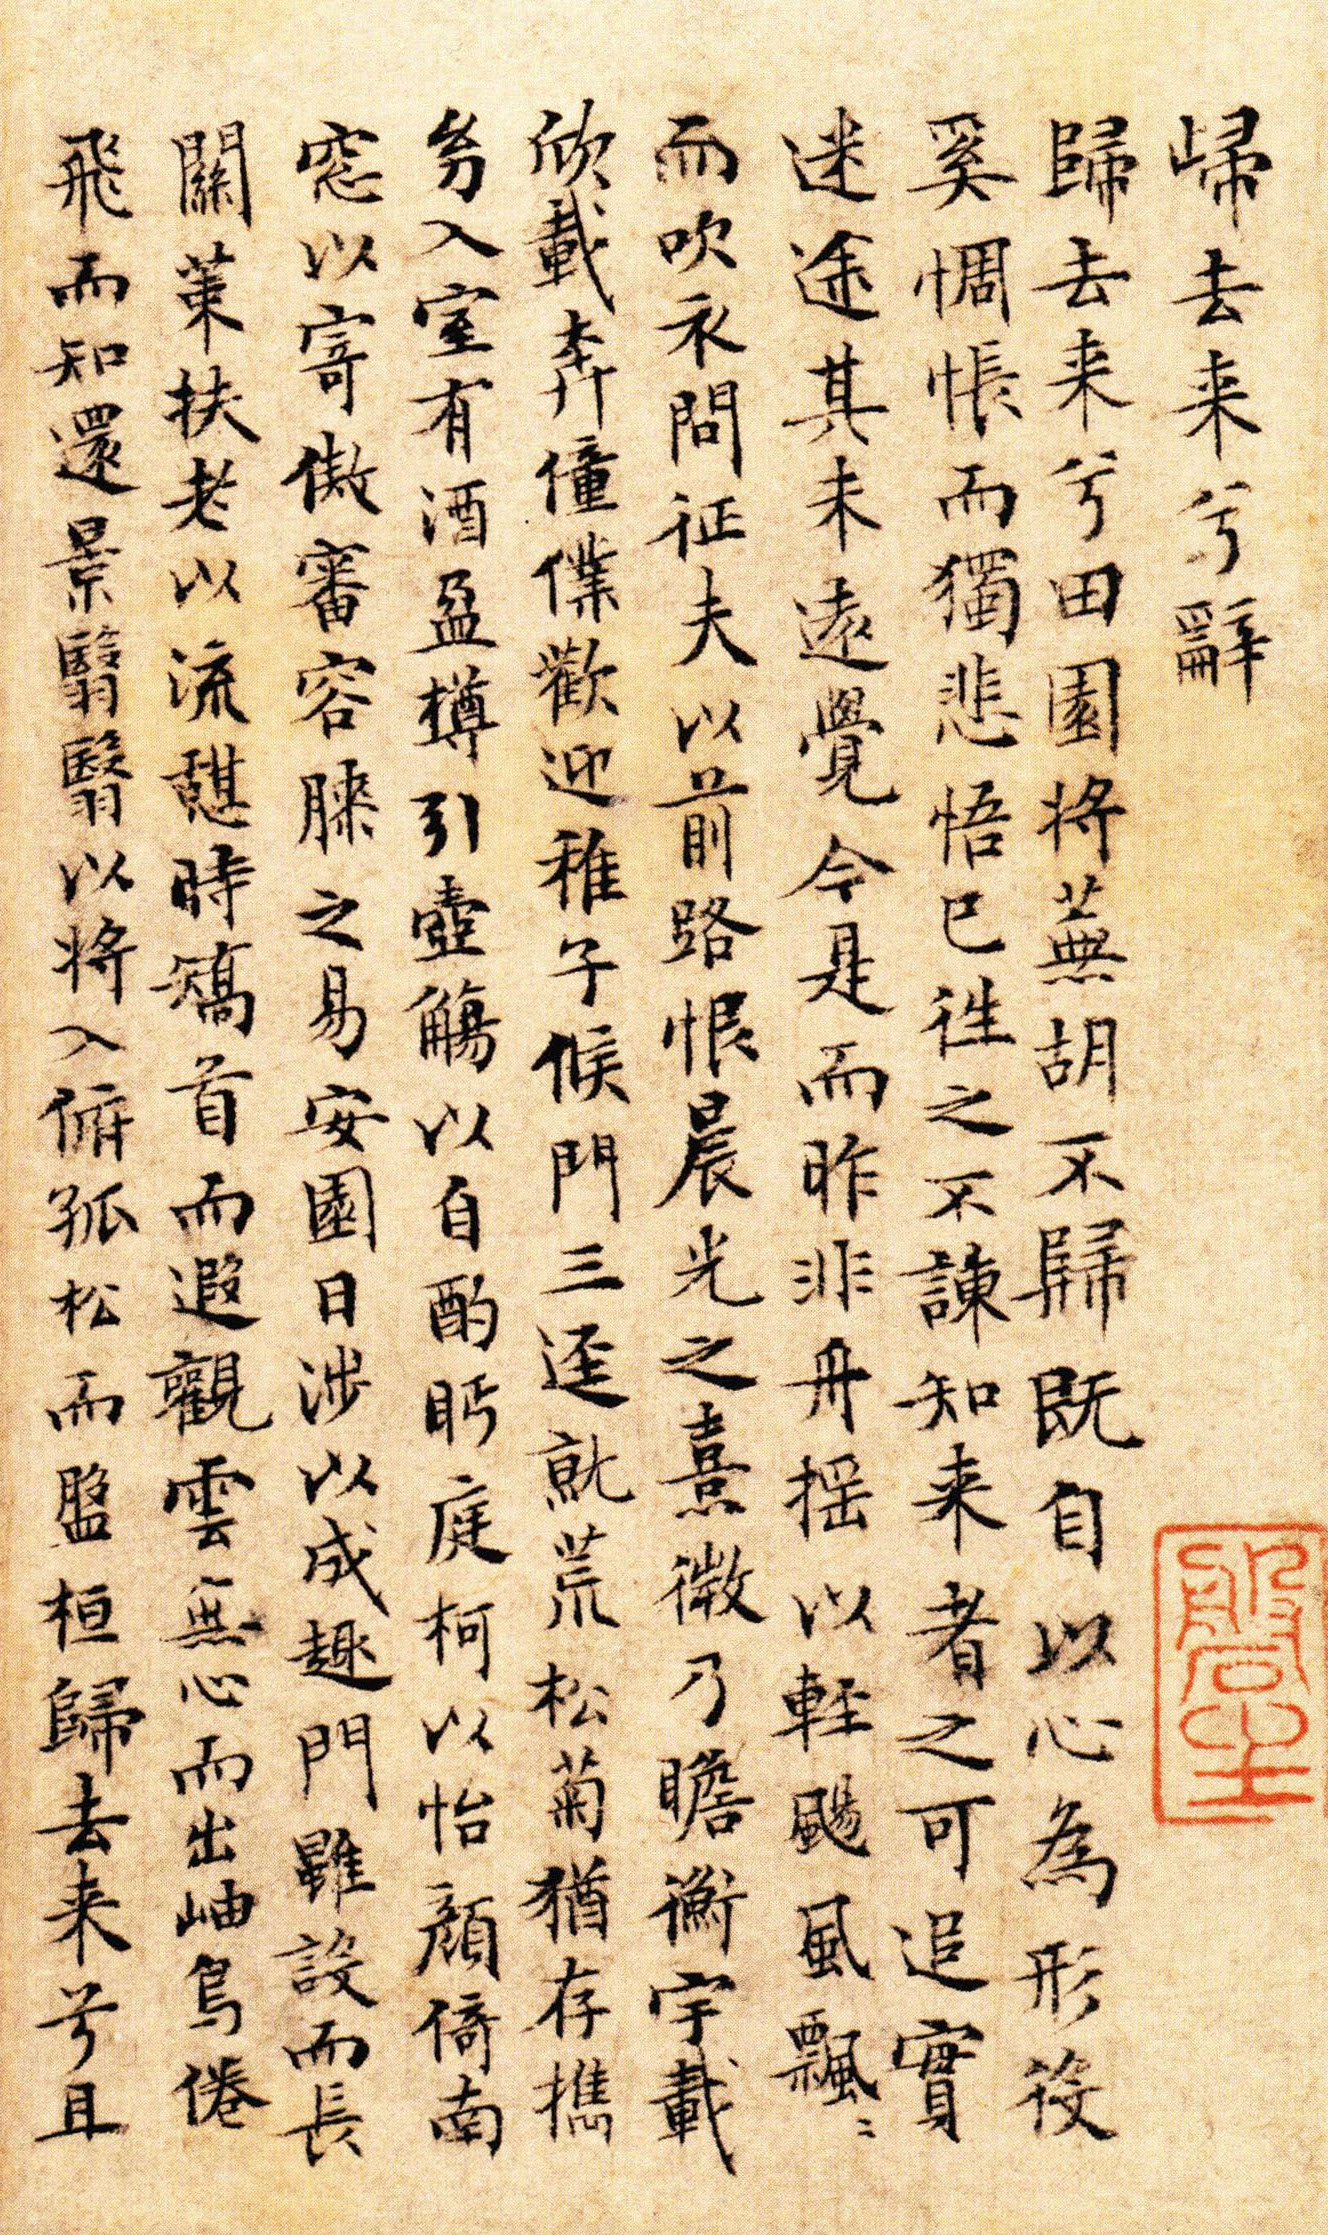 歸去来兮辭
歸去来兮田園将蕪胡不歸既自以心為形役
奚惆悵而獨悲悟已往之不諫知来者之可追實
迷途其未遠覺今是而昨非舟揺以軽颺風飄〻
而吹衣問征夫以前路恨晨光之熹微乃瞻衡宇載
欣載奔僮僕歡迎稚子候門三逕就荒松菊猶存攜
㓜入室有酒盈樽引壺觴以自酌眄庭柯以怡顔倚南
窓以寄傲審容膝之易安園日涉以成趣門雖設而長
關策扶老以流憇時矯首而遐觀雲無心而出岫鳥倦
飛而知還景翳翳以将入俯孤松而盤桓歸去来兮且